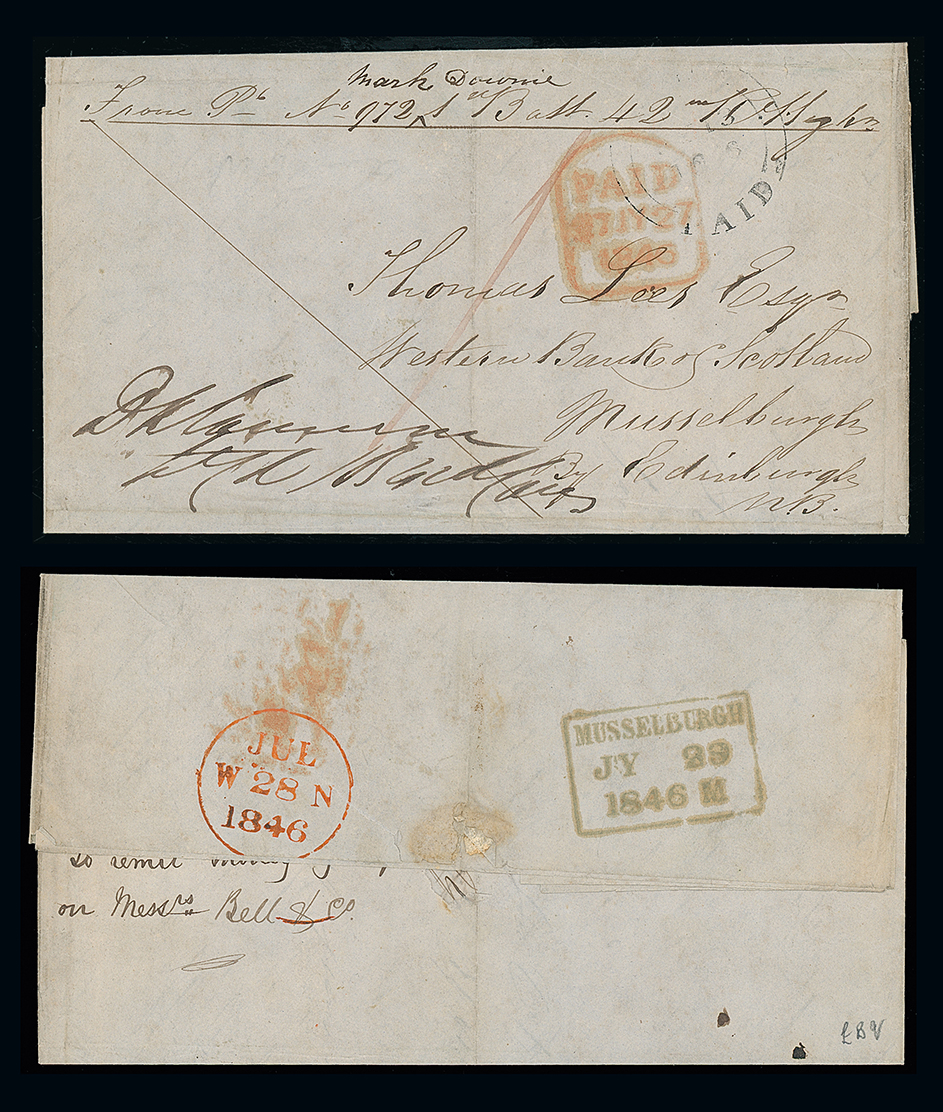 Mark Downie
From Pte No 972, 1st Batt. 42nd R. Highrs
PAID
27 JY 27
1846
PAID
Thomas Lees Esqr
Western Bank of Scotland
Musselburgh
By Edinburgh
N.B.
D A Cameron
JUL
W 28 N
1846
MUSSELBURGH
JY 29
1846 M
to remit money
on Messrs Bell & Co.
£BV